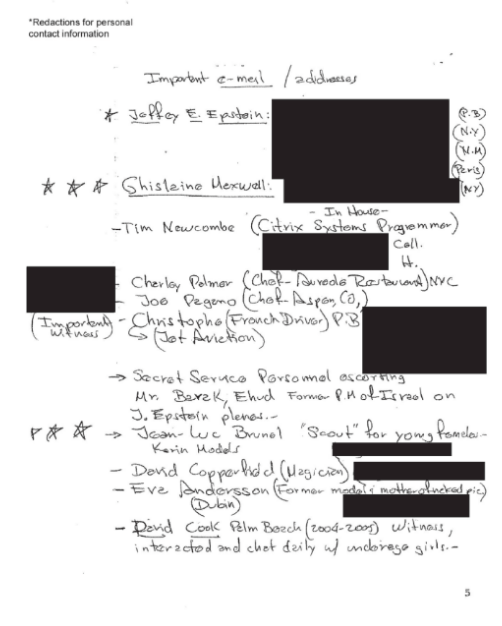 *Redactions for personal
contact information
Important e-mail / addresses
* Jeffey E. Epstein:
(P.B)
(N.Y)
(N.M)
(Paris)
* * * Ghislaine Maxwell:
(NY)
- In House -
- Tim Newcombe (Citrix Systems Programmer)
Cell.
H.
- Charley Palmer (Chef- Aureole Restaurant) NYC
- Joe Pagano (Chef- Aspen, CO,)
(Important Witness) - Christophe (French Driver) P.B
(Jet Aviction)
→ Secret Service Personnel escorting
Mr. Barak, Ehud Former P.M of Israel on
J. Epstein planes.-
* * → Jean-Luc Brunel "Scout" for young females-
Karin Models
- David Copperfield (Magician)
- Eva Andersson (Former model & mother of pic)
(Dubin)
- David Cook Palm Beach (2004-2005) Witness,
interacted and chat daily w/ underage girls.-
5